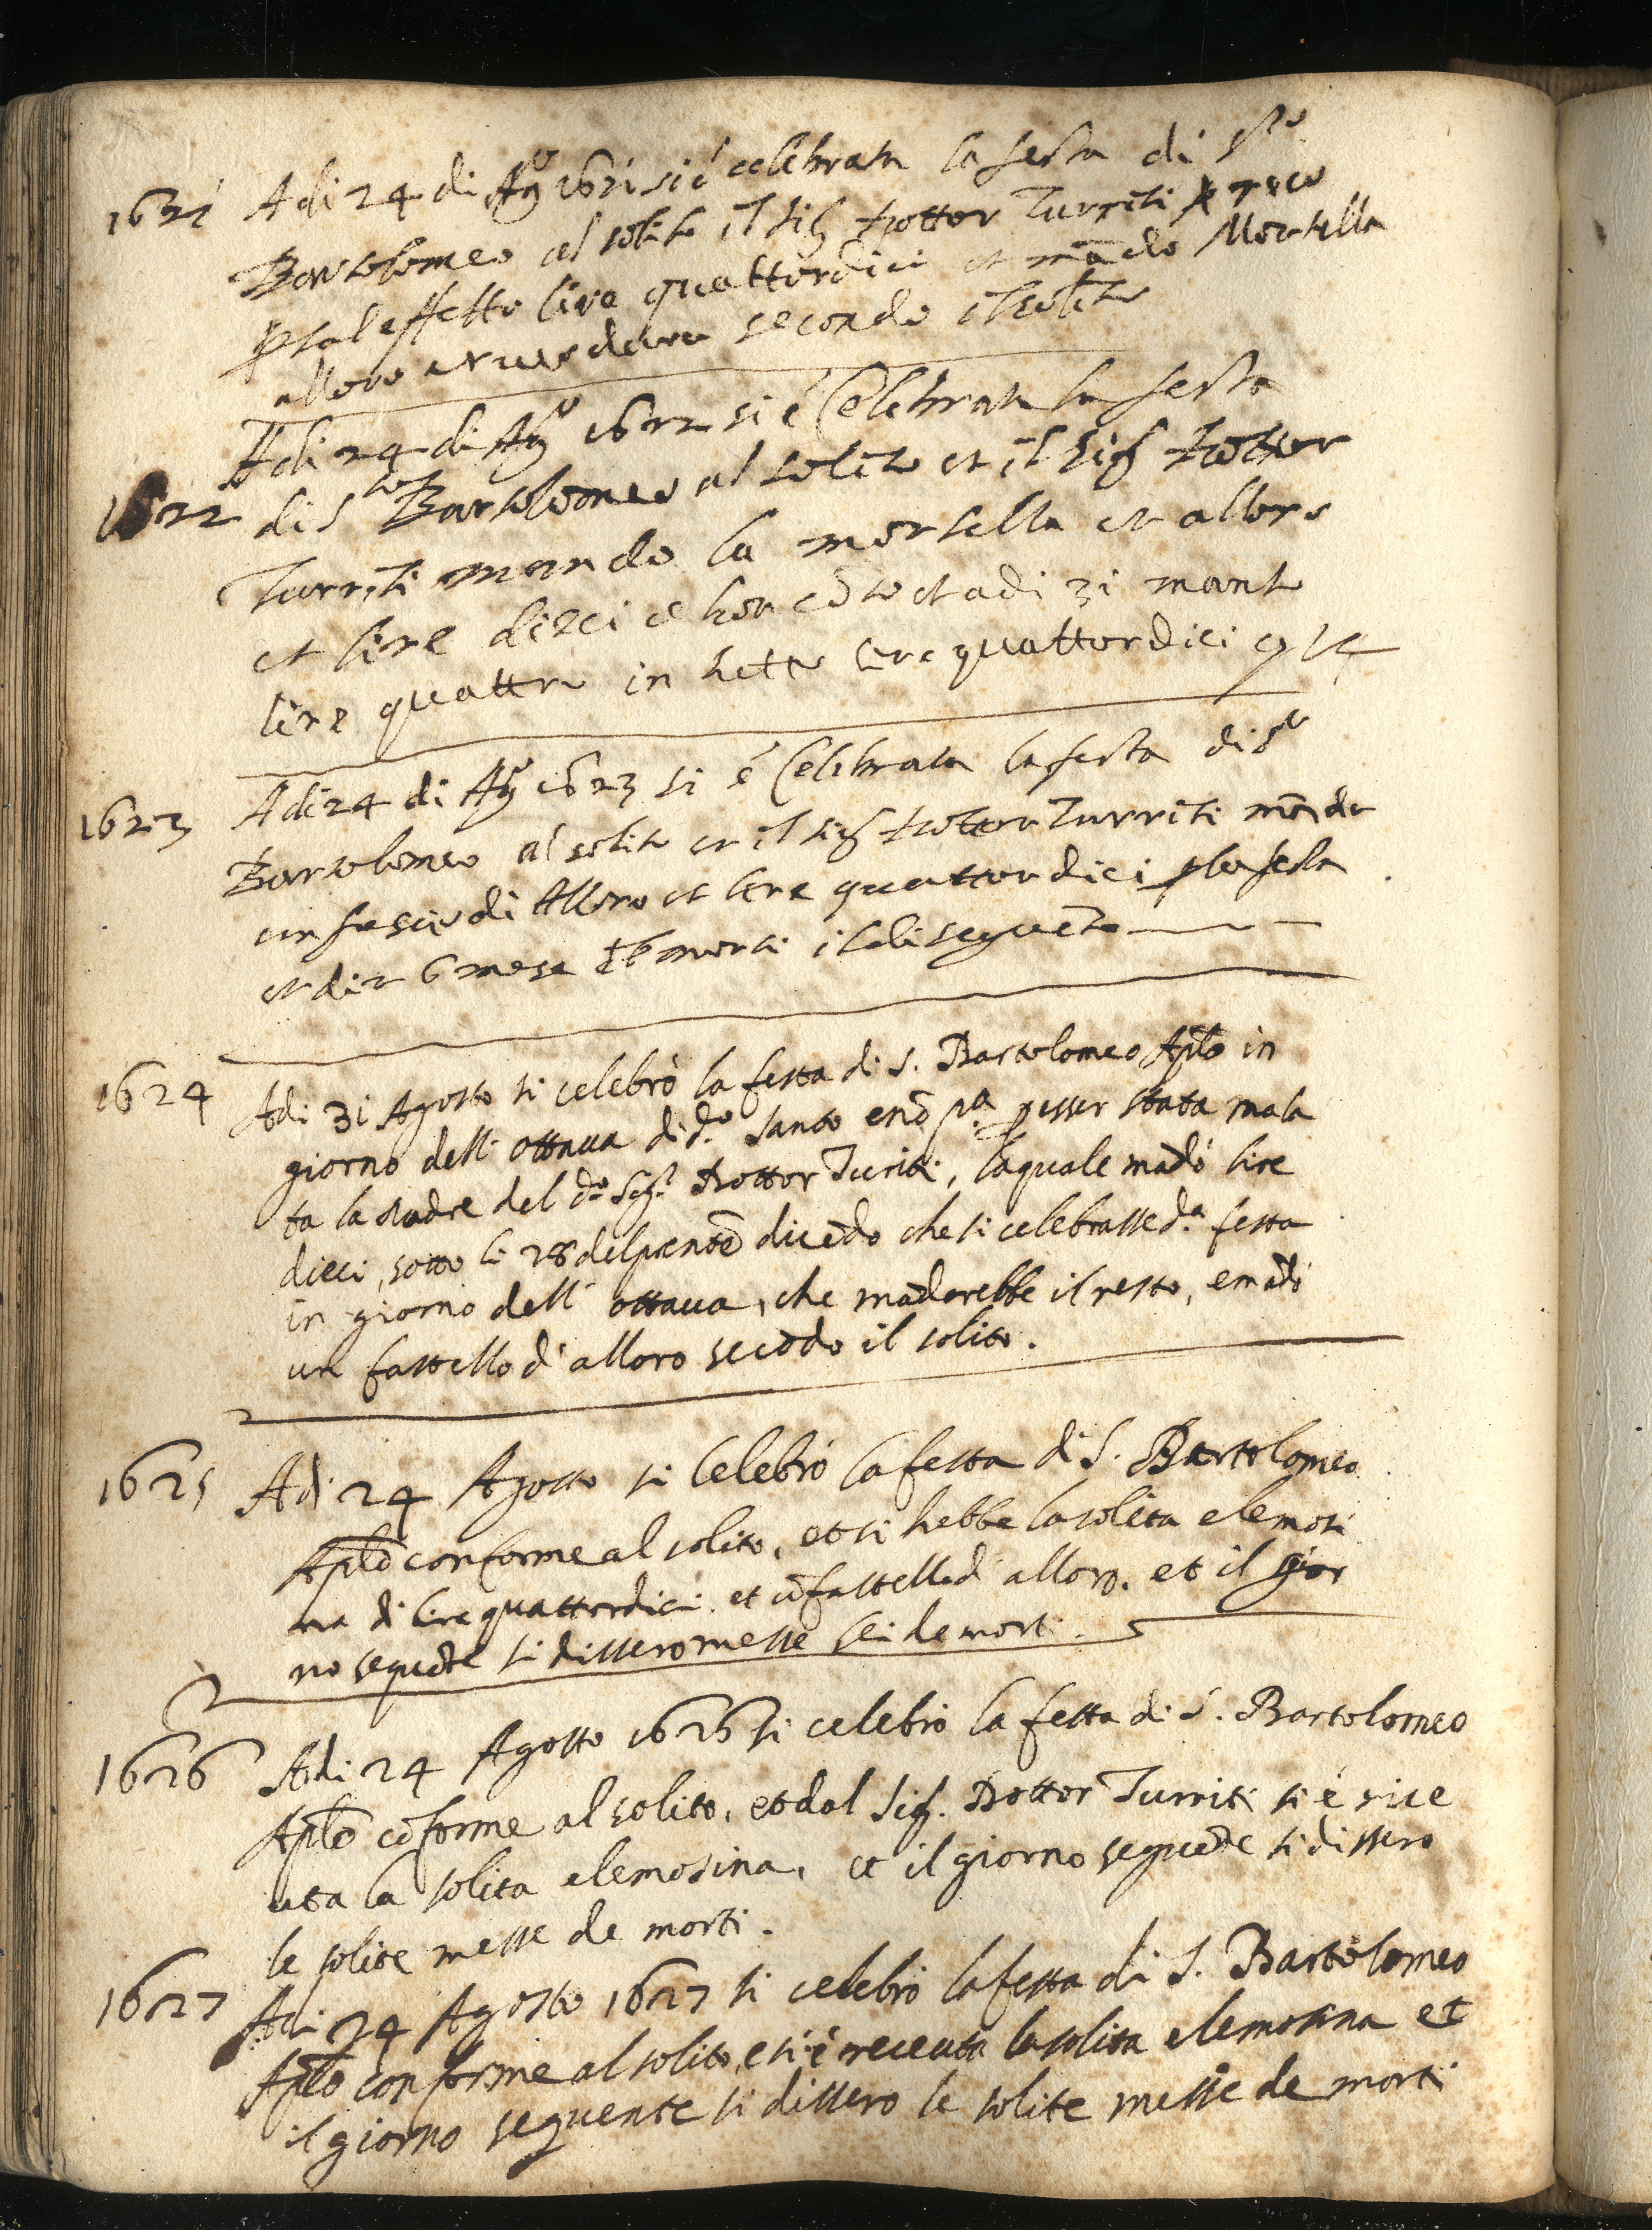 1621 Adi 24 di Agº 1621 si é celebrata la festa di Sto
Bartolomeo al solito il Sig Dottor Turriti
p tal effetto lire quattordici et mādo Mortella
alloro secondo il solito
Adi 24 di Agº 1622 si é Celebrata la festa
1622 di Sto Bartolomeo al solito et il Sig Dottor
Turriti mando la mortella et alloro
et lire dieci et adi 31 mandò
lire quattro in tutto lire quattordici
1623 Adi 24 di Agº 1623 si é Celebrata la festa di Sto
Bartolomeo al solito et il sig Dottor Turriti māda
un fascio di Alloro et lire quattordici p la festa
et dir 6 mese morti il di seguēte
1624 Adi 31 Agosto si celebrò la festa di S. Bartolomeo Aplō in
giorno dell' ottaua di do. Santo e nō pa. p esser stata mala
ta la Madre del do Sigr Dottor Turiti, la quale mādò lire
dieci, sotto li 28 del prēnte dicēdo che si celebrasse da. festa
in giorno dell' ottaua, che māderebbe il resto, e mādò
un fastello d' alloro secōdo il solito.
1625 Adi 24 Agosto si Celebrò la festa di S. Bartolomeo
Aplō conforme al solito, et si hebbe la solita elemosi
na di lire quattordici et ū fastello d' alloro. et il gior
no seguēte si dissero messe sei de morti.
1626 Adi 24 Agosto 1626 si celebrò la festa di S. Bartolomeo
Aplō cōforme al solito, et dal Sig. Dottor Turriti si é rice
uta la solita elemosina, et il giorno seguēte si dissero
le solite messe de morti.
1627 Adi 24 Agosto 1627 si celebrò la festa di S. Bartolomeo
Aplō conforme al solito, e si é receuta la solita elemosina et
il giorno seguente si dissero le solite messe de morti